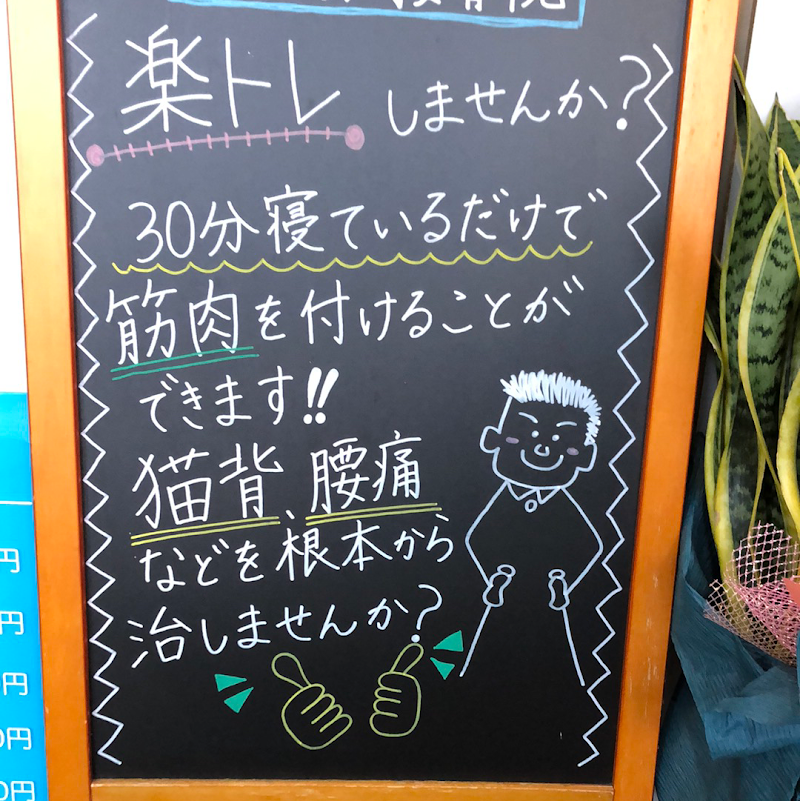 楽トレしませんか?
30分寝ているだけで
筋肉を付けることが
できます!!
猫背、腰痛
などを根本から
治しませんか?
円
円
円
0円
0円